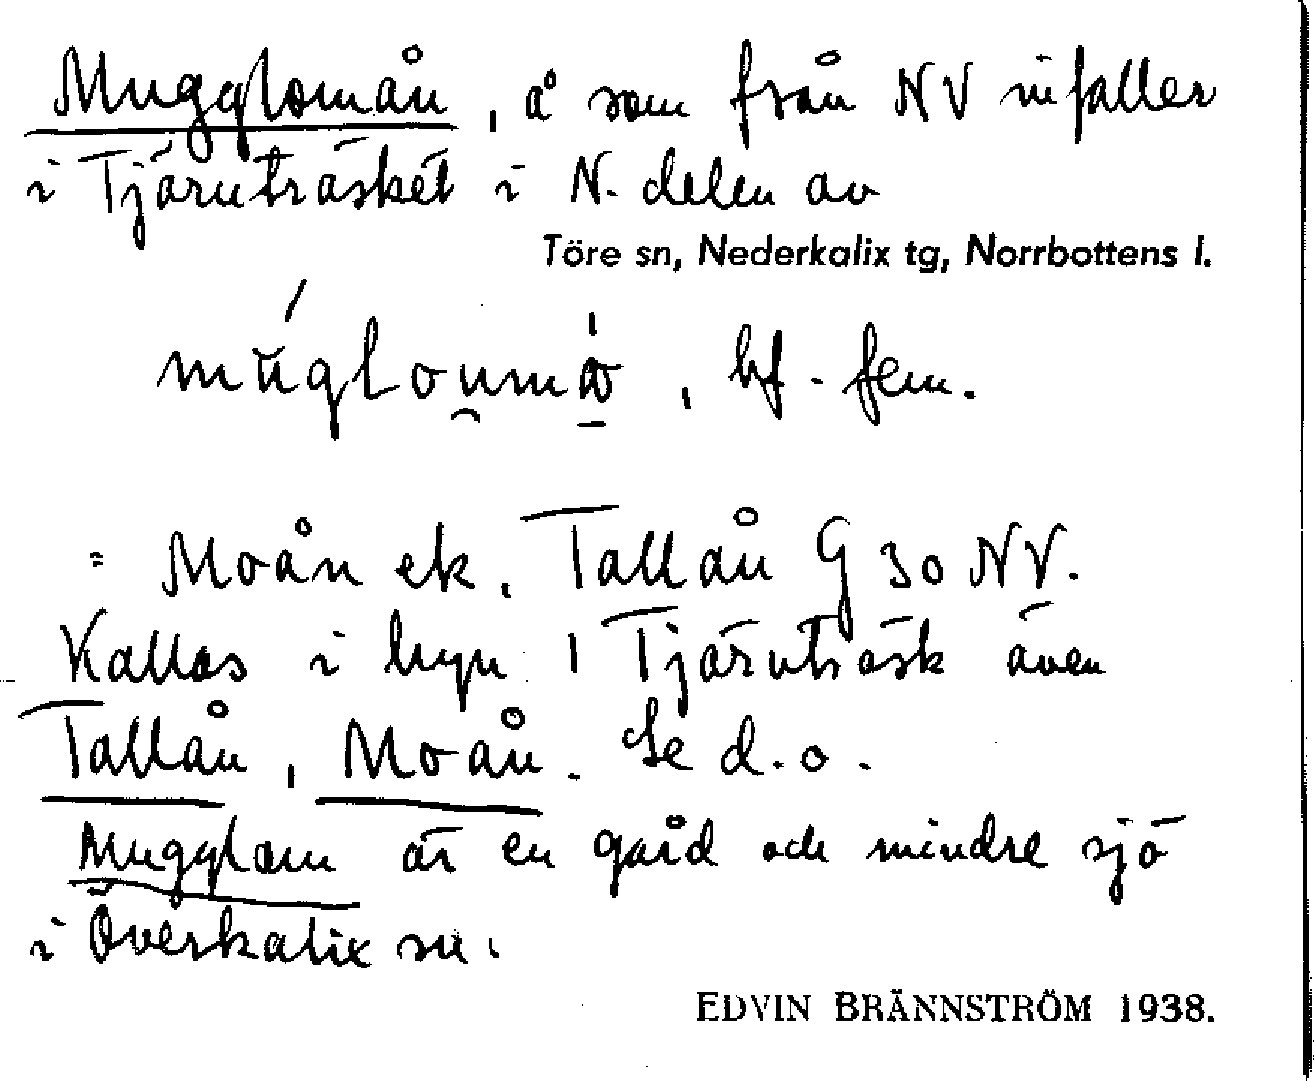 Muggloman, å som från NV infaller
i Tjärnträsket i N. delen av
Töre sn, Nederkalix tg, Norrbottens l.
bf. fem.
= Moån ek, Tallån G 30 NV.
Kallas i byn i Tjärnträsk även
Tallån, Moån. Se d. o.
Mugglom är en gård och mindre sjö
i Överkalix sn.
EDVIN BRÄNNSTRÖM 1938.